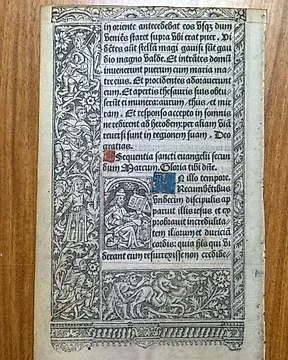 in oriente antecedebat eos vsqz dum
veniēs staret supra vbi erat puer. Vi
dētes aūt stellā magi gauisi sūt gau
dio magno valde. Et intrātes domū
inuenerunt puerum cum maria ma-
tre eius. Et procidentes adorauerunt
eum. Et apertis thesauris suis obtu-
lerūt ei munera: aurum, thus, et mir
ram. Et responso accepto in somnis
ne redirent ad herodem: per aliam viā
reuersi sunt in regionem suam. Deo
gratias.
Sequentia sancti euangelii secun
dum Marcum. Gloria tibi dñe.
IN illo tempore.
Recumbētibus
vndecim discipulis ap
paruit illis iesus et ex
probrauit incredulita-
tem illorum et duriciā
cordis: quia his qui vi
derant eum resurrexisse non credide-